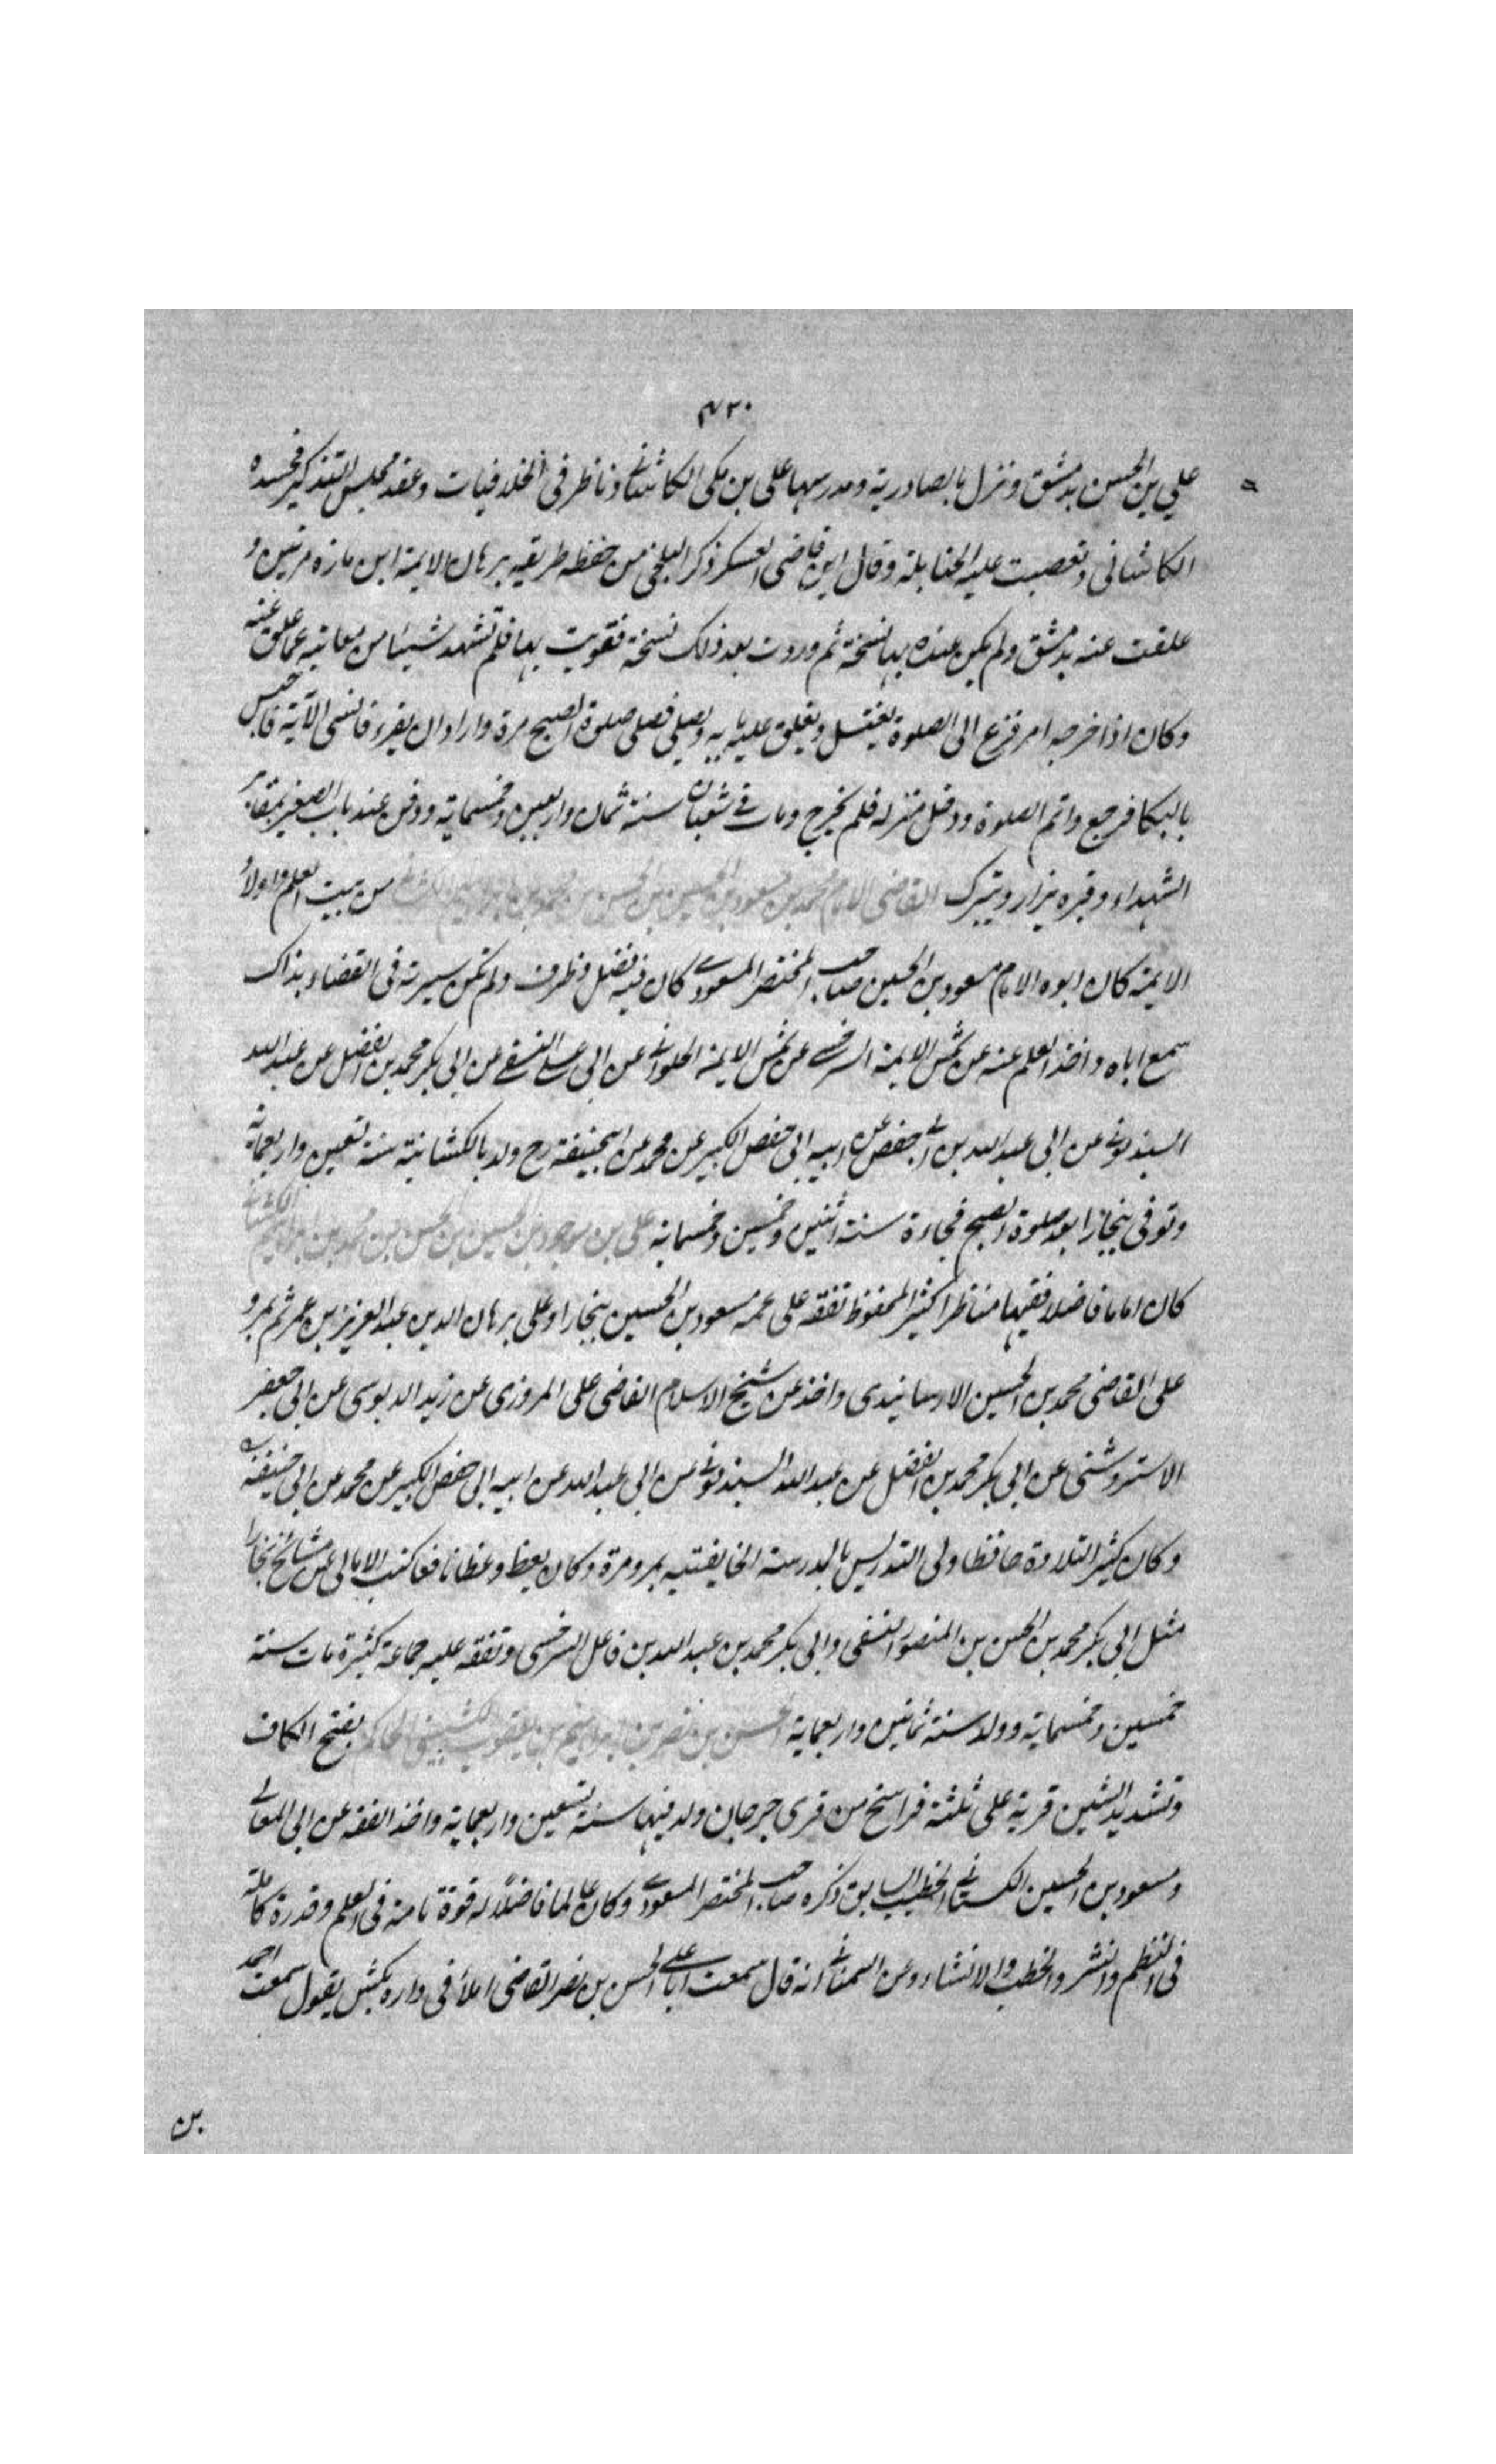 ٤٣٠
علي بن الحسن بدمشق ونزل بالصادرية ومدرسها علي بن مكي الكاشاني وناظر في الخلافيات وعقد مجلس التذكير فحسده
الكاشاني وتعصبت عليه الحنابلة وقال ابن قاضي العسكر ذكر البلخي من حفظه طريقه برهان الايمة ابن مازه مرتين و
علقت عنه بدمشق ولم يكن عنده بها نسخة ثم وردت بعد ذلك نسخة فقوبلت بها فلم تشهد شيئا من معانيه عما علق عنه
وكان اذا حزبه امر فزع الى الصلوة يغتسل ويغلق عليه بابه ويصلي فصلى صلوة الصبح مرة واراد ان يقرء فانسى الآية فاحس
بالبكا فرجع واتم الصلوة ودخل منزله فلم يخرج ومات في شعبان سنة ثمان واربعين وخمسماية ودفن عند باب الصغير بمقابر
الشهداء وقبره يزار ويتبرك القاضي الامام محمد بن مسعود بن الحسين بن الحسن بن محمد بن ابراهيم الكشاني من بيت العلم واولاد
الايمة كان ابوه الامام مسعود بن الحسين صاحب المختصر المسعودي كان فيه فضل وظرف ولم تكن سيرته في القضاء بذاك
سمع اباه واخذ العلم عنه عن شمس الايمة السرخسي عن شمس الايمة الحلواني عن ابي علي النسفي عن ابي بكر محمد بن الفضل عن عبد الله
السبذموني عن ابي عبد الله بن ابي حفص عن ابيه ابي حفص الكبير عن محمد عن ابيحنيفة رح ولد بالكشانية سنة تسعين واربعماية
وتوفي ببخارا بعد صلوة الصبح فجاءة سنة اثنين وخمسين وخمسماية علي بن موجود بن الحسين بن الحسن بن محمد بن ابراهيم الكشاني
كان اماما فاضلا فقيها مناظرا كثير المحفوظ تفقه على عمه مسعود بن الحسين ببخارا وعلى برهان الدين عبد العزيز بن عمر ثم بمرو
على القاضي محمد بن الحسين الارسابندي واخذ عن شيخ الاسلام القاضي علي المروزي عن زيد الدبوسي عن ابي جعفر
الاستروشني عن ابي بكر محمد بن الفضل عن عبد الله السبذموني عن ابي عبد الله عن ابيه ابي حفص الكبير عن محمد عن ابي حنيفة
وكان كثير التلاوة حافظا ولى التدريس بالمدرسة الخاقانية بمرو مرة وكان يعظ وعظا نافعا كتب الامالي عن مشايخ بخارا
مثل ابي بكر محمد بن الحسن بن المنصور النسفي وابي بكر محمد بن عبد الله بن فاعل السرخسي وتفقه عليه جماعة كثيرة مات سنة
خمسين وخمسماية وولد سنة ثمانين واربعماية الحسن بن نصر بن ابراهيم بن يعقوب الكشي الحاكم بفتح الكاف
وتشديد الشين قرية على ثلثة فراسخ من قرى جرجان ولد فيها سنة تسعين واربعماية واخذ الفقه عن ابي المعالي
ومسعود بن الحسين الكستاني الخطيب السابق ذكره صاحب المختصر المسعودي وكان عالما فاضلا له قوة تامة في العلم وقدرة كاملة
في النظم والنشر والخطب والانشاء وعن السمعاني انه قال سمعت ابا علي الحسن بن نصر القاضي املأ في داره بكش يقول سمعت احمد
بن